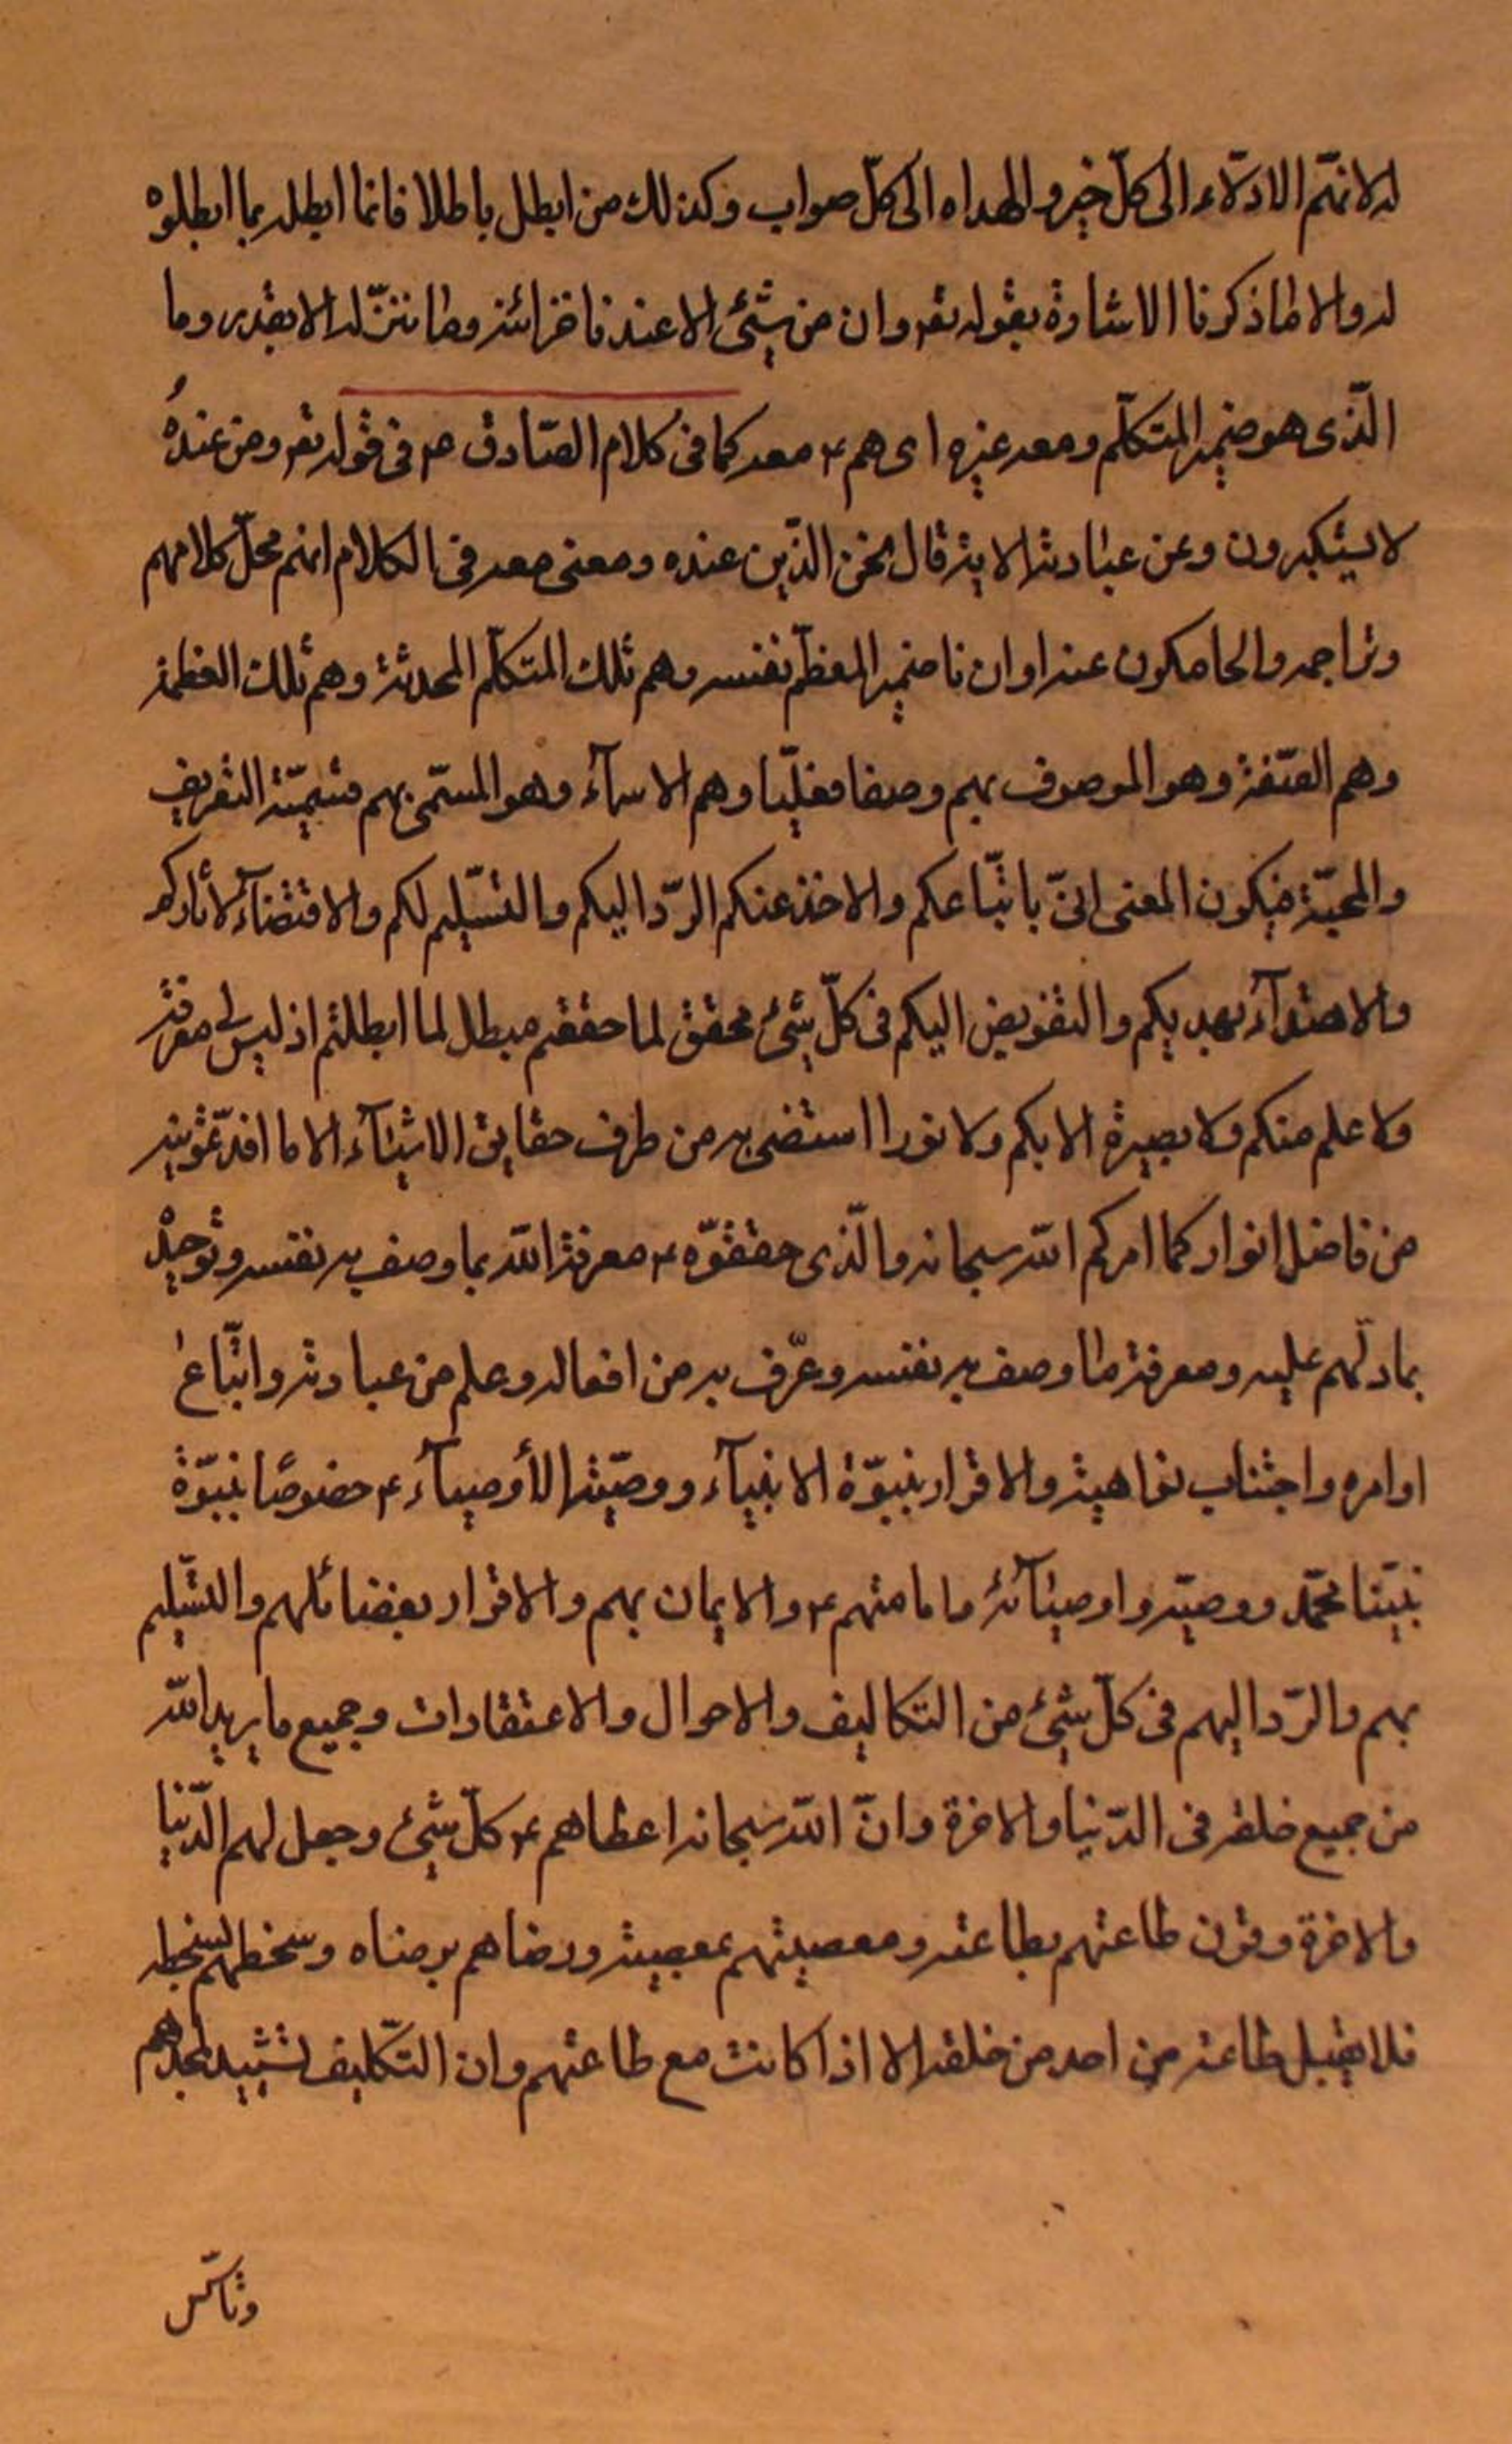 له لانهم الادلّاء الى كلّ خير والهداه الى كلّ صواب وكذلك من ابطل باطلا فانما ابطله بما ابطلوه
له والا لما ذكرنا الاشارة بقوله تعر وان من شيئ الا عندنا خزائنه وما ننزّله الا بقدر وما
الّذى هو ضمير المتكلّم ومعه غيره اى هم ۴ معه كما فى كلام الصّادق ۴ فى قوله تعر ومن عندهُ
لا يستكبرون وعن عبادته الاية قال نحن الذّين عنده ومعنى معه فى الكلام انهم محلّ كلامهم
وتراجمه والحاكمون عنه او ان نا ضمير المعظّم نفسه وهم تلك المتكلّم المحدثة وهم تلك العظمة
وهم الصّفة وهو الموصوف بهم وصفا فعليّا وهم الاسمآء وهو المسمّى بهم تسميّة التعريف
والمحبّة فيكون المعنى انىّ باتّباعكم والاخذ عنكم الردّ اليكم والتسّليم لكم والاقتضآء لأثاركم
والاهتدآء بهديكم والتفويض اليكم فى كلّ شيئ محقق لما حققتم مبطل لما ابطلتم اذ ليس لى معرفة
ولا علم منكم ولا بصيرة الا بكم ولا نورا استضى به من طرف حقايق الاشيآء الا ما افدتمونيه
من فاضل انوار كما امركم الله سبحانه والّذى حققوّه ۴ معرفة الله بما وصف به نفسه وتوحيده
بما دلّهم عليه ومعرفة ما وصف به نفسه وعرّف به من افعاله وعلم من عبادته واتّباع
اوامره واجتناب نواهيه والاقرار بنبوّة الانبيآء ووصيّة الأوصيآء ۴ خصوصًا نبوّة
نبيّنا محمّد ووصيّه واوصيآئه وامامتهم ۴ والايمان بهم والاقرار بفضائلهم والتسّليم
بهم والرّد اليهم فى كلّ شيئ من التكاليف والاحوال والاعتقادات وجميع ما يريد الله
من جميع خلقه فى الدّنيا والاخرة وانّ الله سبحانه اعطاهم ۴ كلّ شيئ وجعل لهم الدّنيا
والاخرة وقرن طاعتهم بطاعته ومعصيتهم بمعصيته ورضاهم برضاه وسخطهم بسخطه
فلا يقبل طاعته من احد من خلقه الا اذا كانت مع طاعتهم وان التكّليف تشييد لمجدهم